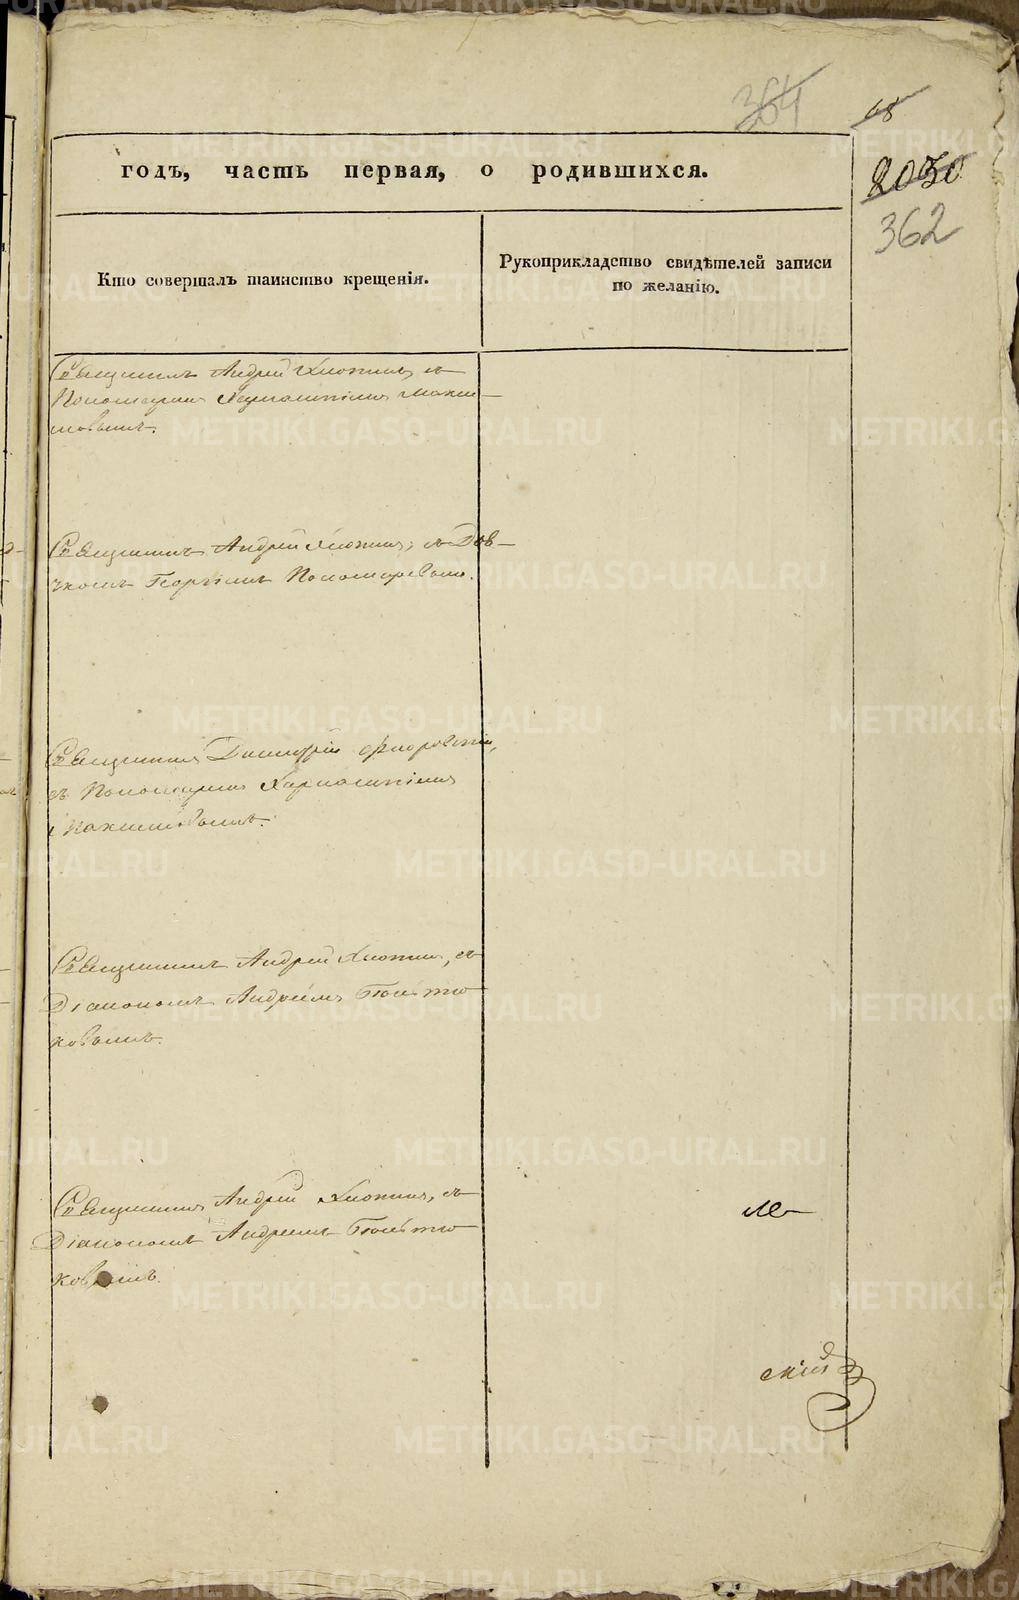 364
68
2030
362
годъ, часть первая, о родившихся.
Кто совершалъ таинство крещенія.
Рукоприкладство свидѣтелей записи
по желанію.
Священникъ Андрей с
Пономаремъ Харлампіемъ Макси-
мовымъ.
Священникъ Андрей съ Дья-
чкомъ Георгіемъ Пономаревымъ.
Священникъ Димитрій Флоровскій,
съ Пономаремъ Харлампіемъ
Максимовымъ.
Священникъ Андрей съ
Діакономъ Андреемъ
ковымъ.
Священникъ Андрей съ
Діакономъ Андреемъ
ковымъ.
скій
METRIKI.GASO-URAL.RU